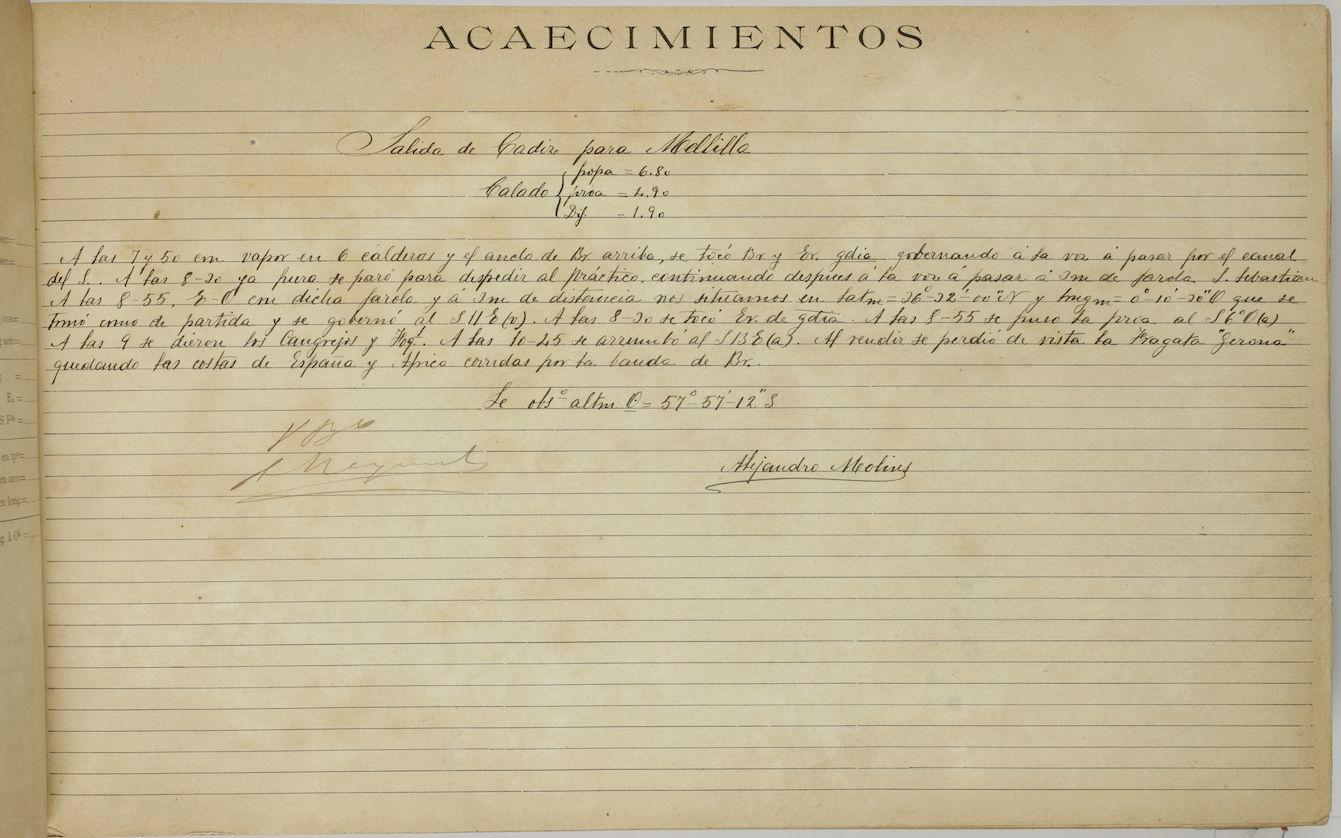 ACAECIMIENTOS
Salida de Cadiz para Mellilla
popa = 6.80
Calado proa = 4.90
Dif. = 1.90
A las 7 y 50 con vapor en 6 calderas y el ancla de Br arriba, se tocó Br y Er. gdia gobernando á la voz á pasar por el canal
del S. A las 8-20 ya fuera se paró para despedir al práctico, continuando despues á la voz á pasar á 3m de farola S. Sebastian
A las 8-55, E-O con dicha farola y á 3m de distancia nos situamos en latm = 36°-32'-00"N y longm = 0°-10'-20"O que se
tomó como de partida y se gobernó al S11E(v). A las 8-20 se tocó Er. de gdia. A las 8-55 se puso la proa al S6°O(a)
A las 9 se dieron los Cangrejos y Foq. A las 10-25 se arrumbó al S13E(a). Al rendir se perdió de vista la Fragata "Gerona"
quedando las costas de España y Africa corridas por la banda de Br.
Se obsó altm O = 57°-57'-12" S
V B°
Alejandro Molins